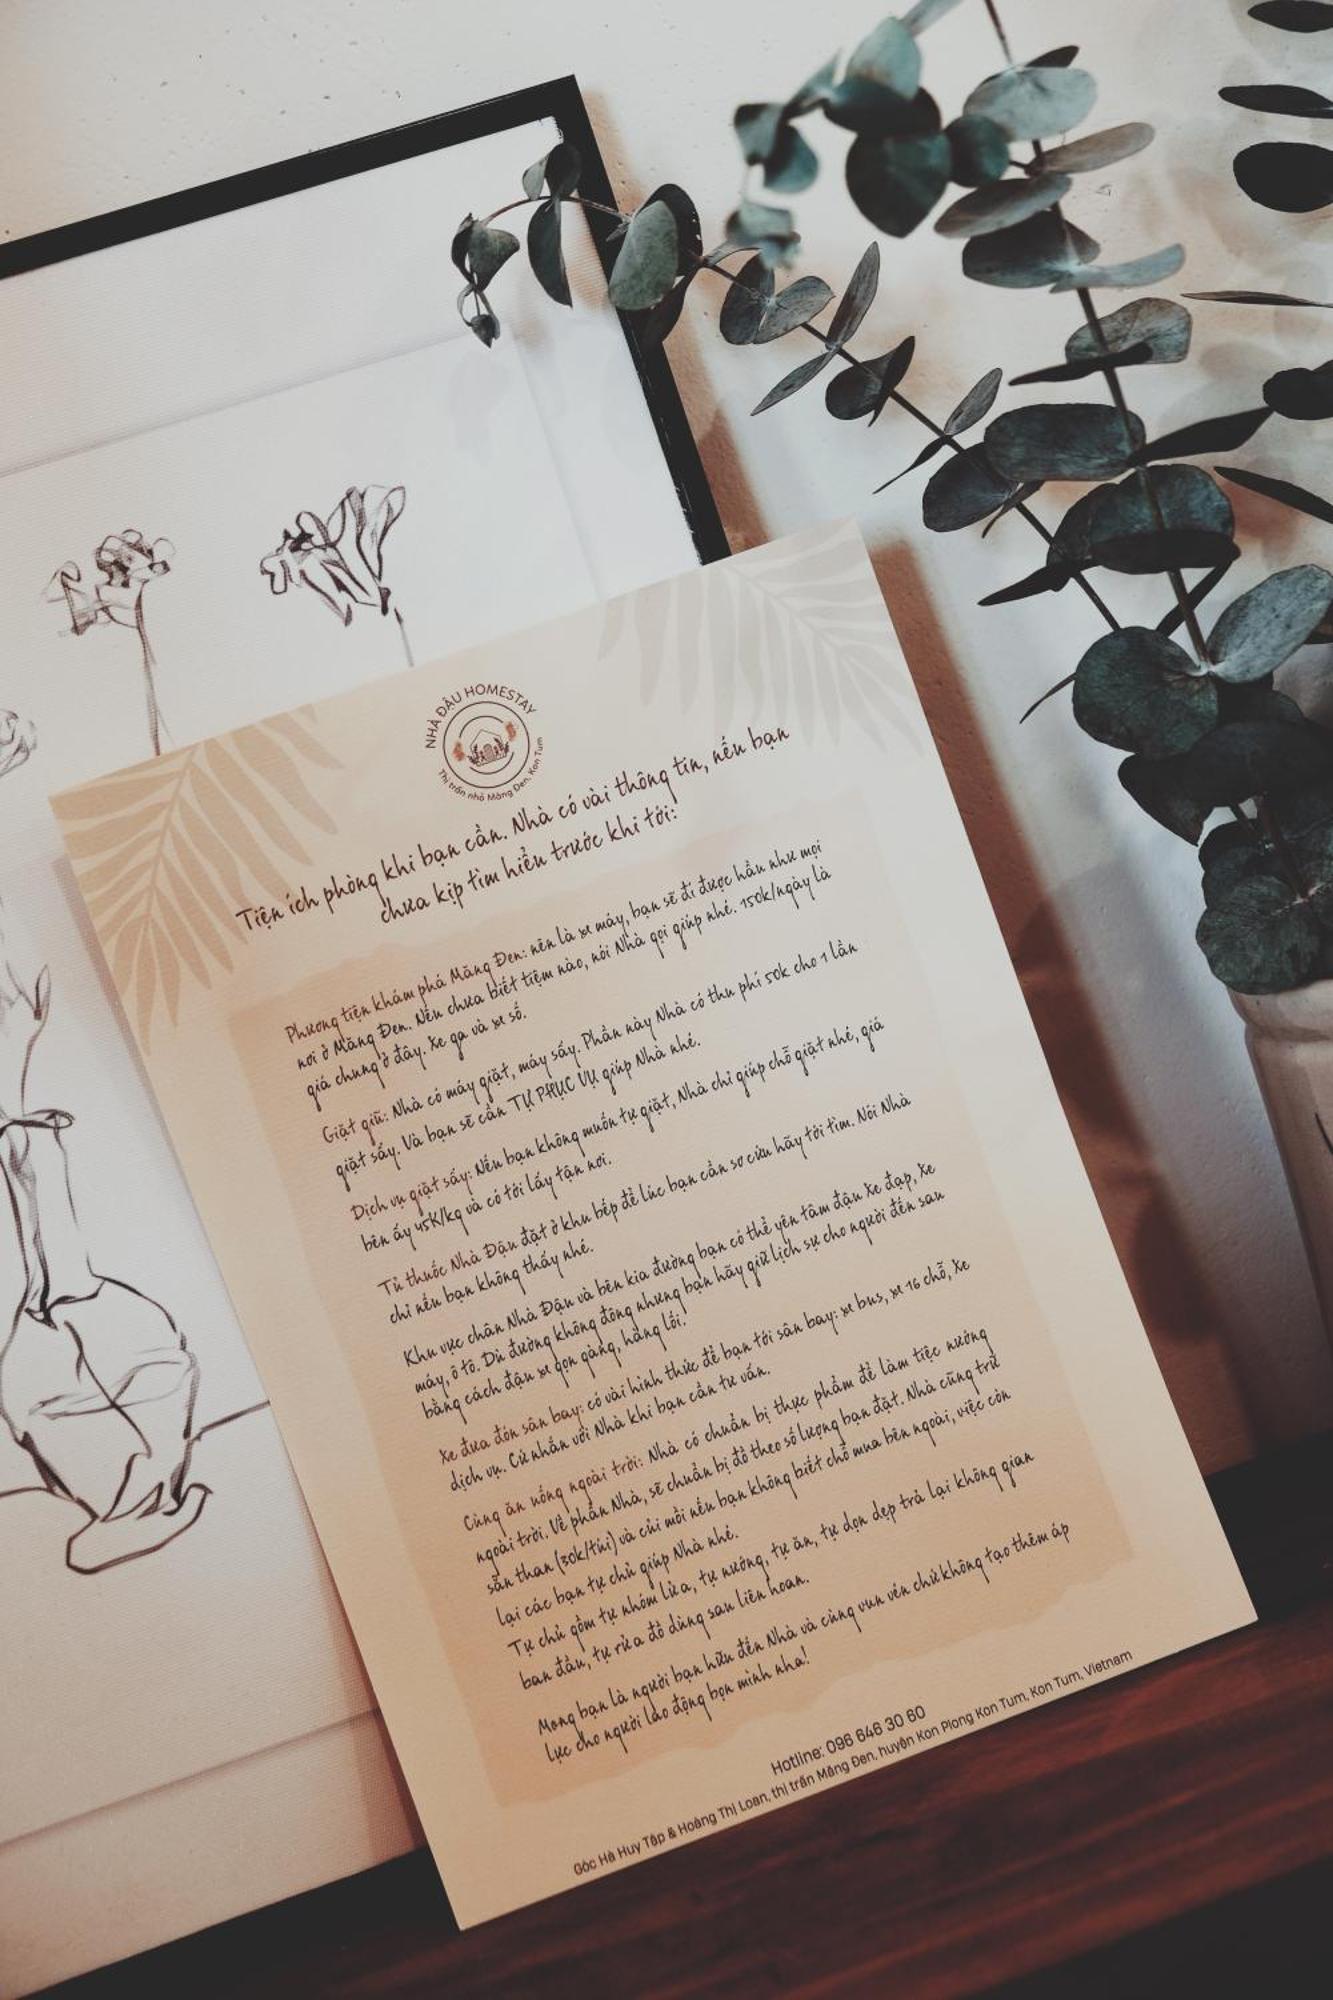 NHÀ ĐẬU HOMESTAY
Thị trấn nhỏ Măng Đen, Kon Tum
Tiện ích phòng khi bạn cần. Nhà có vài thông tin, nếu bạn
chưa kịp tìm hiểu trước khi tới:
Phương tiện khám phá Măng Đen: nên là xe máy, bạn sẽ đi được hầu như mọi
nơi ở Măng Đen. Nếu chưa biết tiệm nào, nói Nhà gọi giúp nhé. 150k/ngày là
giá chung ở đây. Xe ga và xe số.
Giặt giũ: Nhà có máy giặt, máy sấy. Phần này Nhà có thu phí 50k cho 1 lần
giặt sấy. Và bạn sẽ cần TỰ PHỤC VỤ giúp Nhà nhé.
Dịch vụ giặt sấy: Nếu bạn không muốn tự giặt, Nhà chỉ giúp chỗ giặt nhé, giá
bên ấy 45K/kg và có tới lấy tận nơi.
Tủ thuốc Nhà Đậu đặt ở khu bếp để lúc bạn cần sơ cứu hãy tới tìm. Nói Nhà
chỉ nếu bạn không thấy nhé.
Khu vực chân Nhà Đậu và bên kia đường bạn có thể yên tâm đậu Xe đạp, Xe
máy, ô tô. Dù đường không đông nhưng bạn hãy giữ lịch sự cho người đến sau
bằng cách đậu xe gọn gàng, hàng lối.
Xe đưa đón sân bay: có vài hình thức để bạn tới sân bay: xe bus, xe 16 chỗ, Xe
dịch vụ. Cứ nhắn với Nhà khi bạn cần tư vấn.
Cùng ăn uống ngoài trời: Nhà có chuẩn bị thực phẩm để làm tiệc nướng
ngoài trời. Về phần Nhà, sẽ chuẩn bị đồ theo số lượng bạn đặt. Nhà cũng trữ
sẵn than (30k/túi) và củi mồi nếu bạn không biết chỗ mua bên ngoài, việc còn
lại các bạn tự chủ giúp Nhà nhé.
Tự chủ gồm tự nhóm lửa, tự nướng, tự ăn, tự dọn dẹp trả lại không gian
ban đầu, tự rửa đồ dùng sau liên hoan.
Mong bạn là người bạn hữu đến Nhà và cùng vun vén chứ không tạo thêm áp
lực cho người lao động bọn mình nha!
Hotline: 096 646 30 60
Góc Hà Huy Tập & Hoàng Thị Loan, thị trấn Măng Đen, huyện Kon Plong Kon Tum, Kon Tum, Vietnam